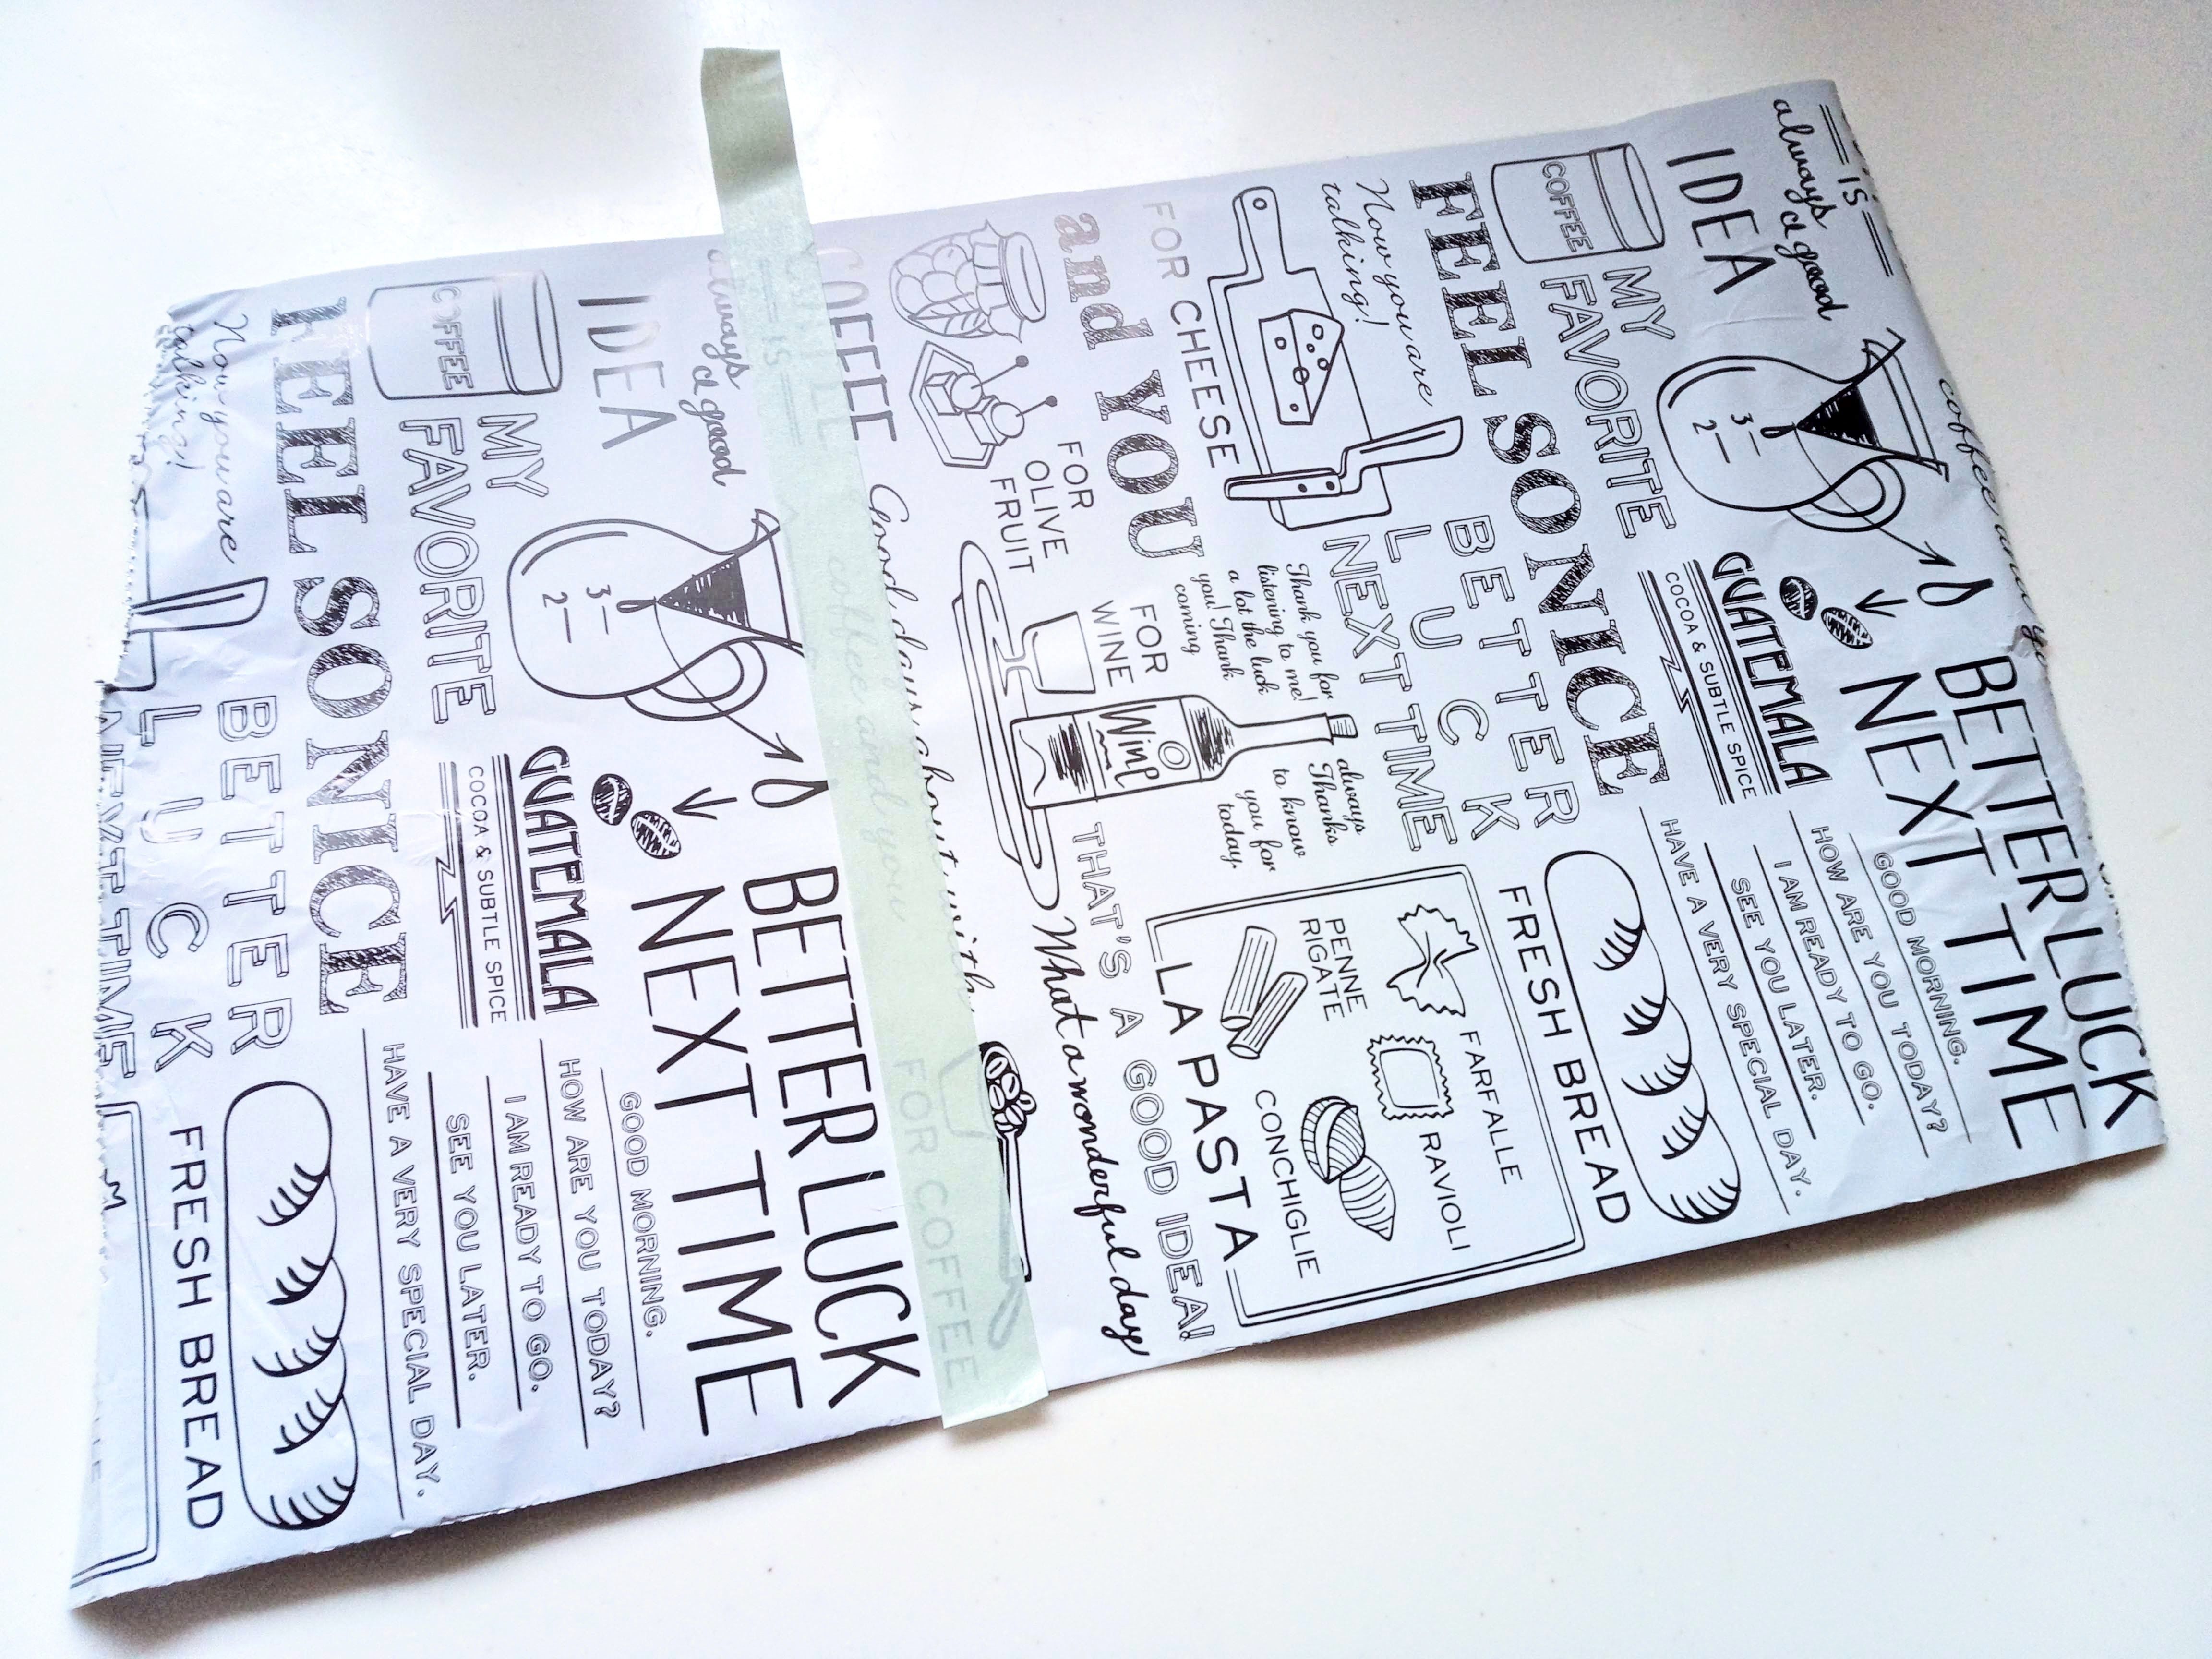 IS
always
a good
IDEA
COFFEE
MY
FAVORITE
FEEL SO NICE
Now you are
talking!
FOR CHEESE
and YOU
coffee and yo
BETTER LUCK
NEXT TIME
GUATEMALA
COCOA & SUBTLE SPICE
GOOD MORNING.
HOW ARE YOU TODAY?
I AM READY TO GO.
SEE YOU LATER.
HAVE A VERY SPECIAL DAY.
FRESH BREAD
BETTER
LUCK
NEXT TIME
Thank you for
listening to me!
a lot the luck
you! Thank
coming
always
Thanks
to know
you for
today.
FARFALLE
RAVIOLI
PENNE
RIGATE
CONCHIGLIE
LA PASTA
FOR
WINE
Wine
THAT'S A GOOD IDEA!
What a wonderful day
FOR
OLIVE
FRUIT
COFFEE
Good days about with
coffee and you
FOR COFFEE
IS
always
a good
IDEA
COFFEE
MY
FAVORITE
FEEL SO NICE
Now you are
talking!
BETTER LUCK
NEXT TIME
GUATEMALA
COCOA & SUBTLE SPICE
GOOD MORNING.
HOW ARE YOU TODAY?
I AM READY TO GO.
SEE YOU LATER.
HAVE A VERY SPECIAL DAY.
FRESH BREAD
BETTER
LUCK
NEXT TIME